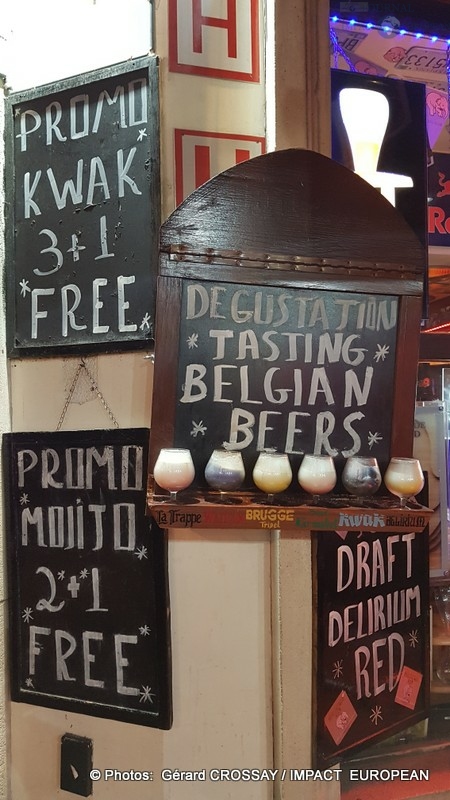 PROMO
KWAK
3+1
FREE
DEGUSTATION
TASTING
BELGIAN
BEERS
La Trappe
BRUGGE
Tripel
KWAK
PROMO
MOJITO
2+1
FREE
DRAFT
DELIRIUM
RED
© Photos: Gérard CROSSAY / IMPACT EUROPEAN